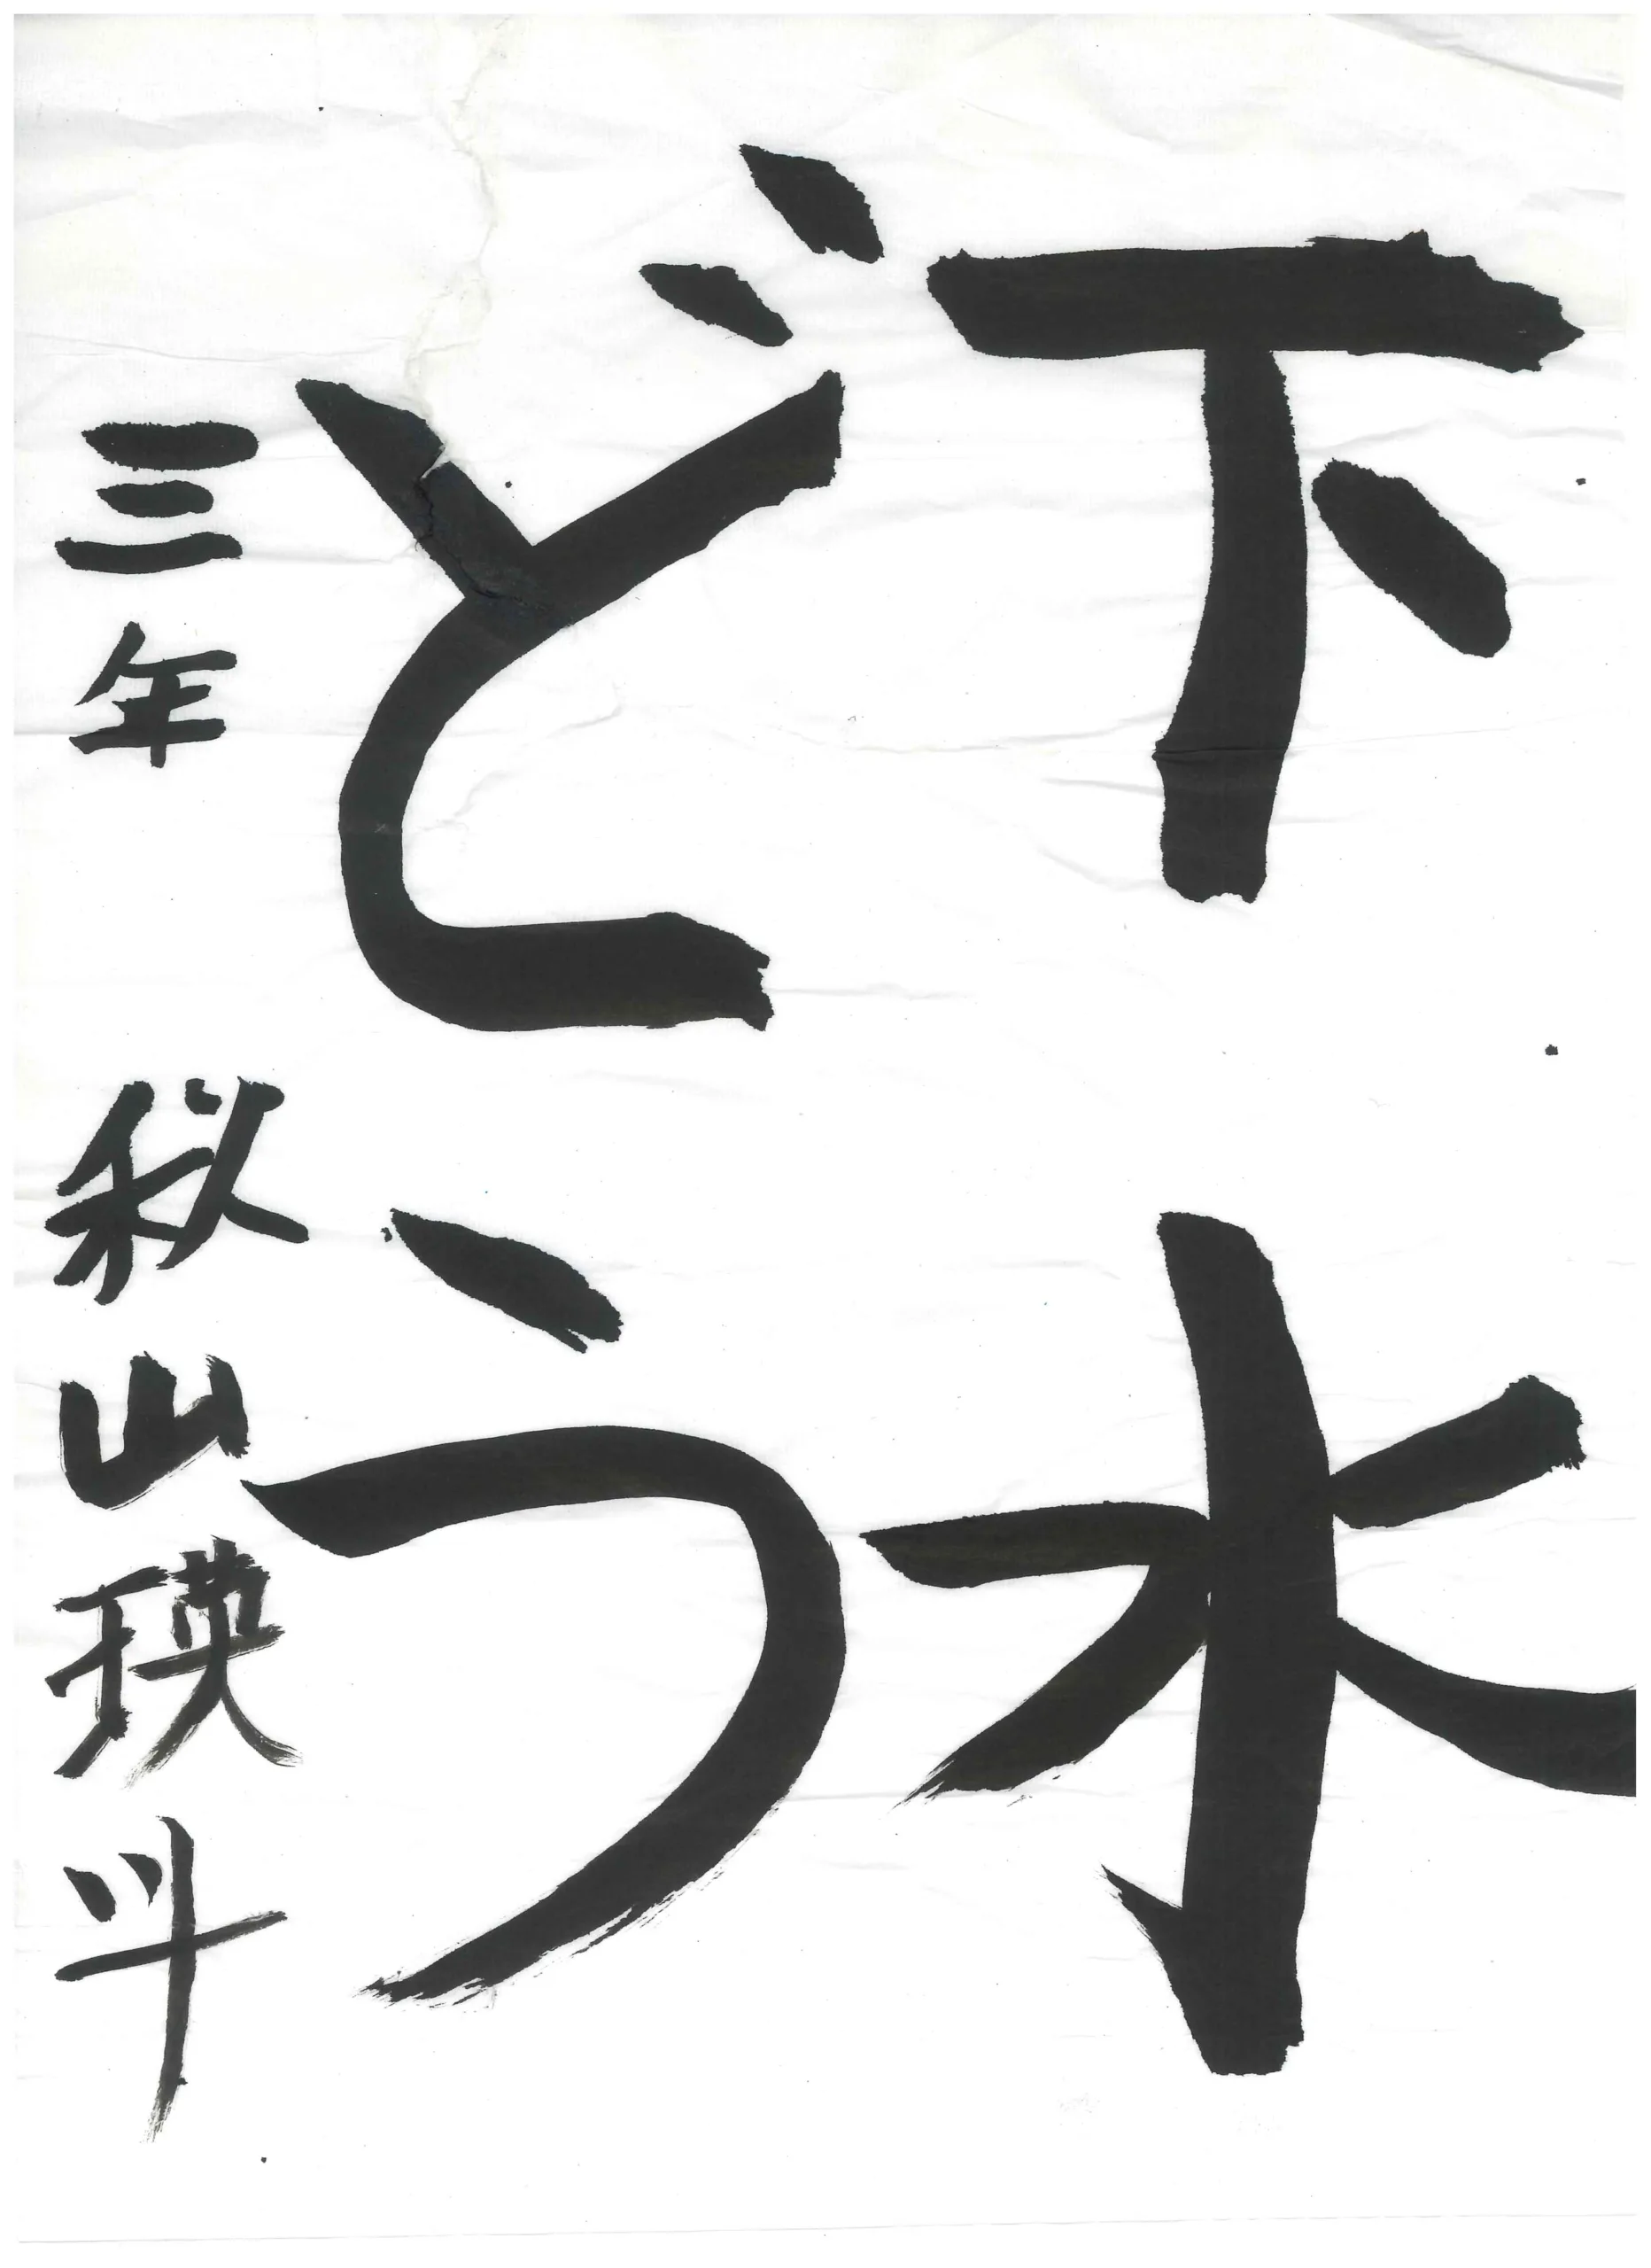 下水
どう
三年 秋山瑛斗